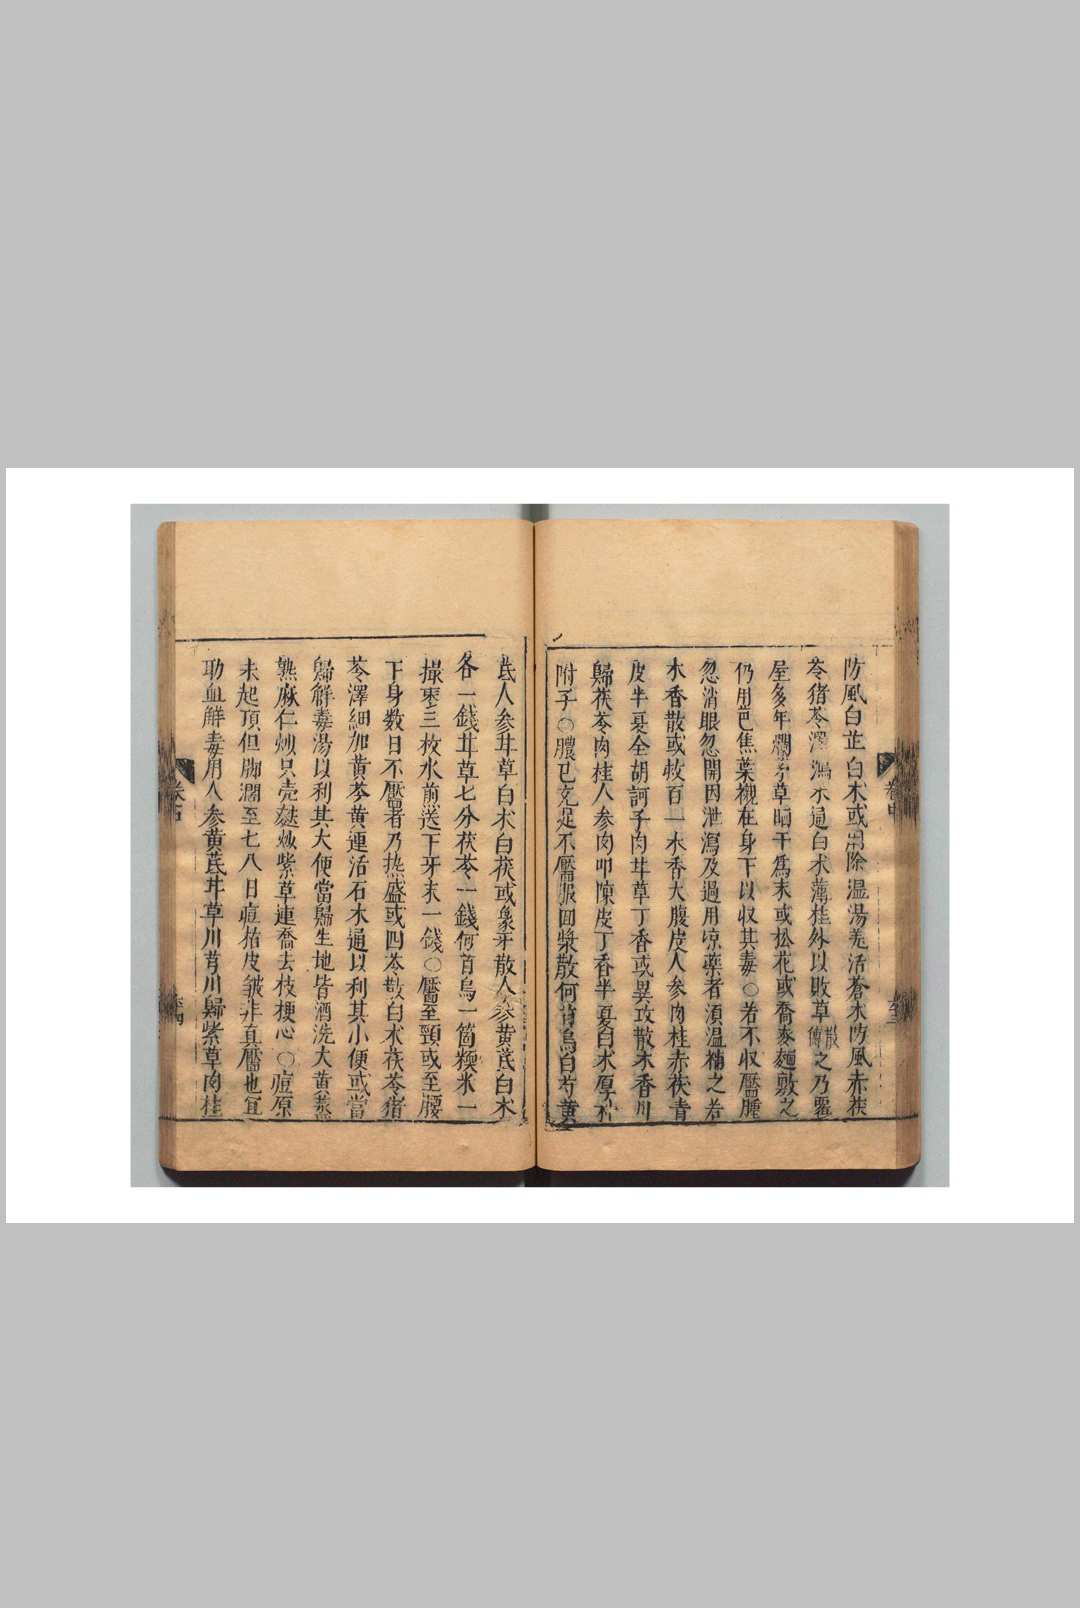 防風白芷白朮或用除温湯羌活蒼朮防風赤茯
苓猪苓澤瀉木通白朮薄桂外以敗草散傅之乃盖
屋多年爛茅草晒干為末或松花或喬麥麵敷之
仍用芭焦葉襯在身下以収其毒〇若不収靨腫
忽消眼忽開因泄瀉及過用凉藥者湏温補之若
木香散或攷百一木香大腹皮人参肉桂赤茯青
皮半夏全胡訶子肉甘草丁香或異攻散木香川
歸茯苓肉桂人参肉叩陳皮丁香半夏白朮厚朴
附子〇膿已充足不靨服回漿散何首烏白芍黄
芪人参甘草白朮白茯或象牙散人参黄芪白朮
各一錢甘草七分茯苓一錢何首烏一箇糯米一
撮棗三枚水煎送下牙末一錢〇靨至頸或至腰
下身数日不靨者乃热盛或四苓散白朮茯苓猪
苓澤細加黄芩黄連活石木通以利其小便或當
歸解毒湯以利其大便當歸生地皆酒洗大黄蒸
熟麻仁炒只壳麸炒紫草連喬去枝梗心〇痘原
未起頂但脚濶至七八日痘枯皮皱非真靨也宜
助血解毒用人参黄芪甘草川芎川歸紫草肉桂